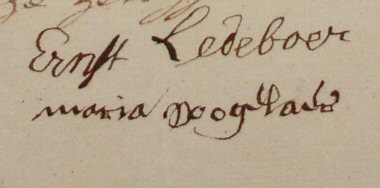 Ernst Ledeboer
maria Hooglaer